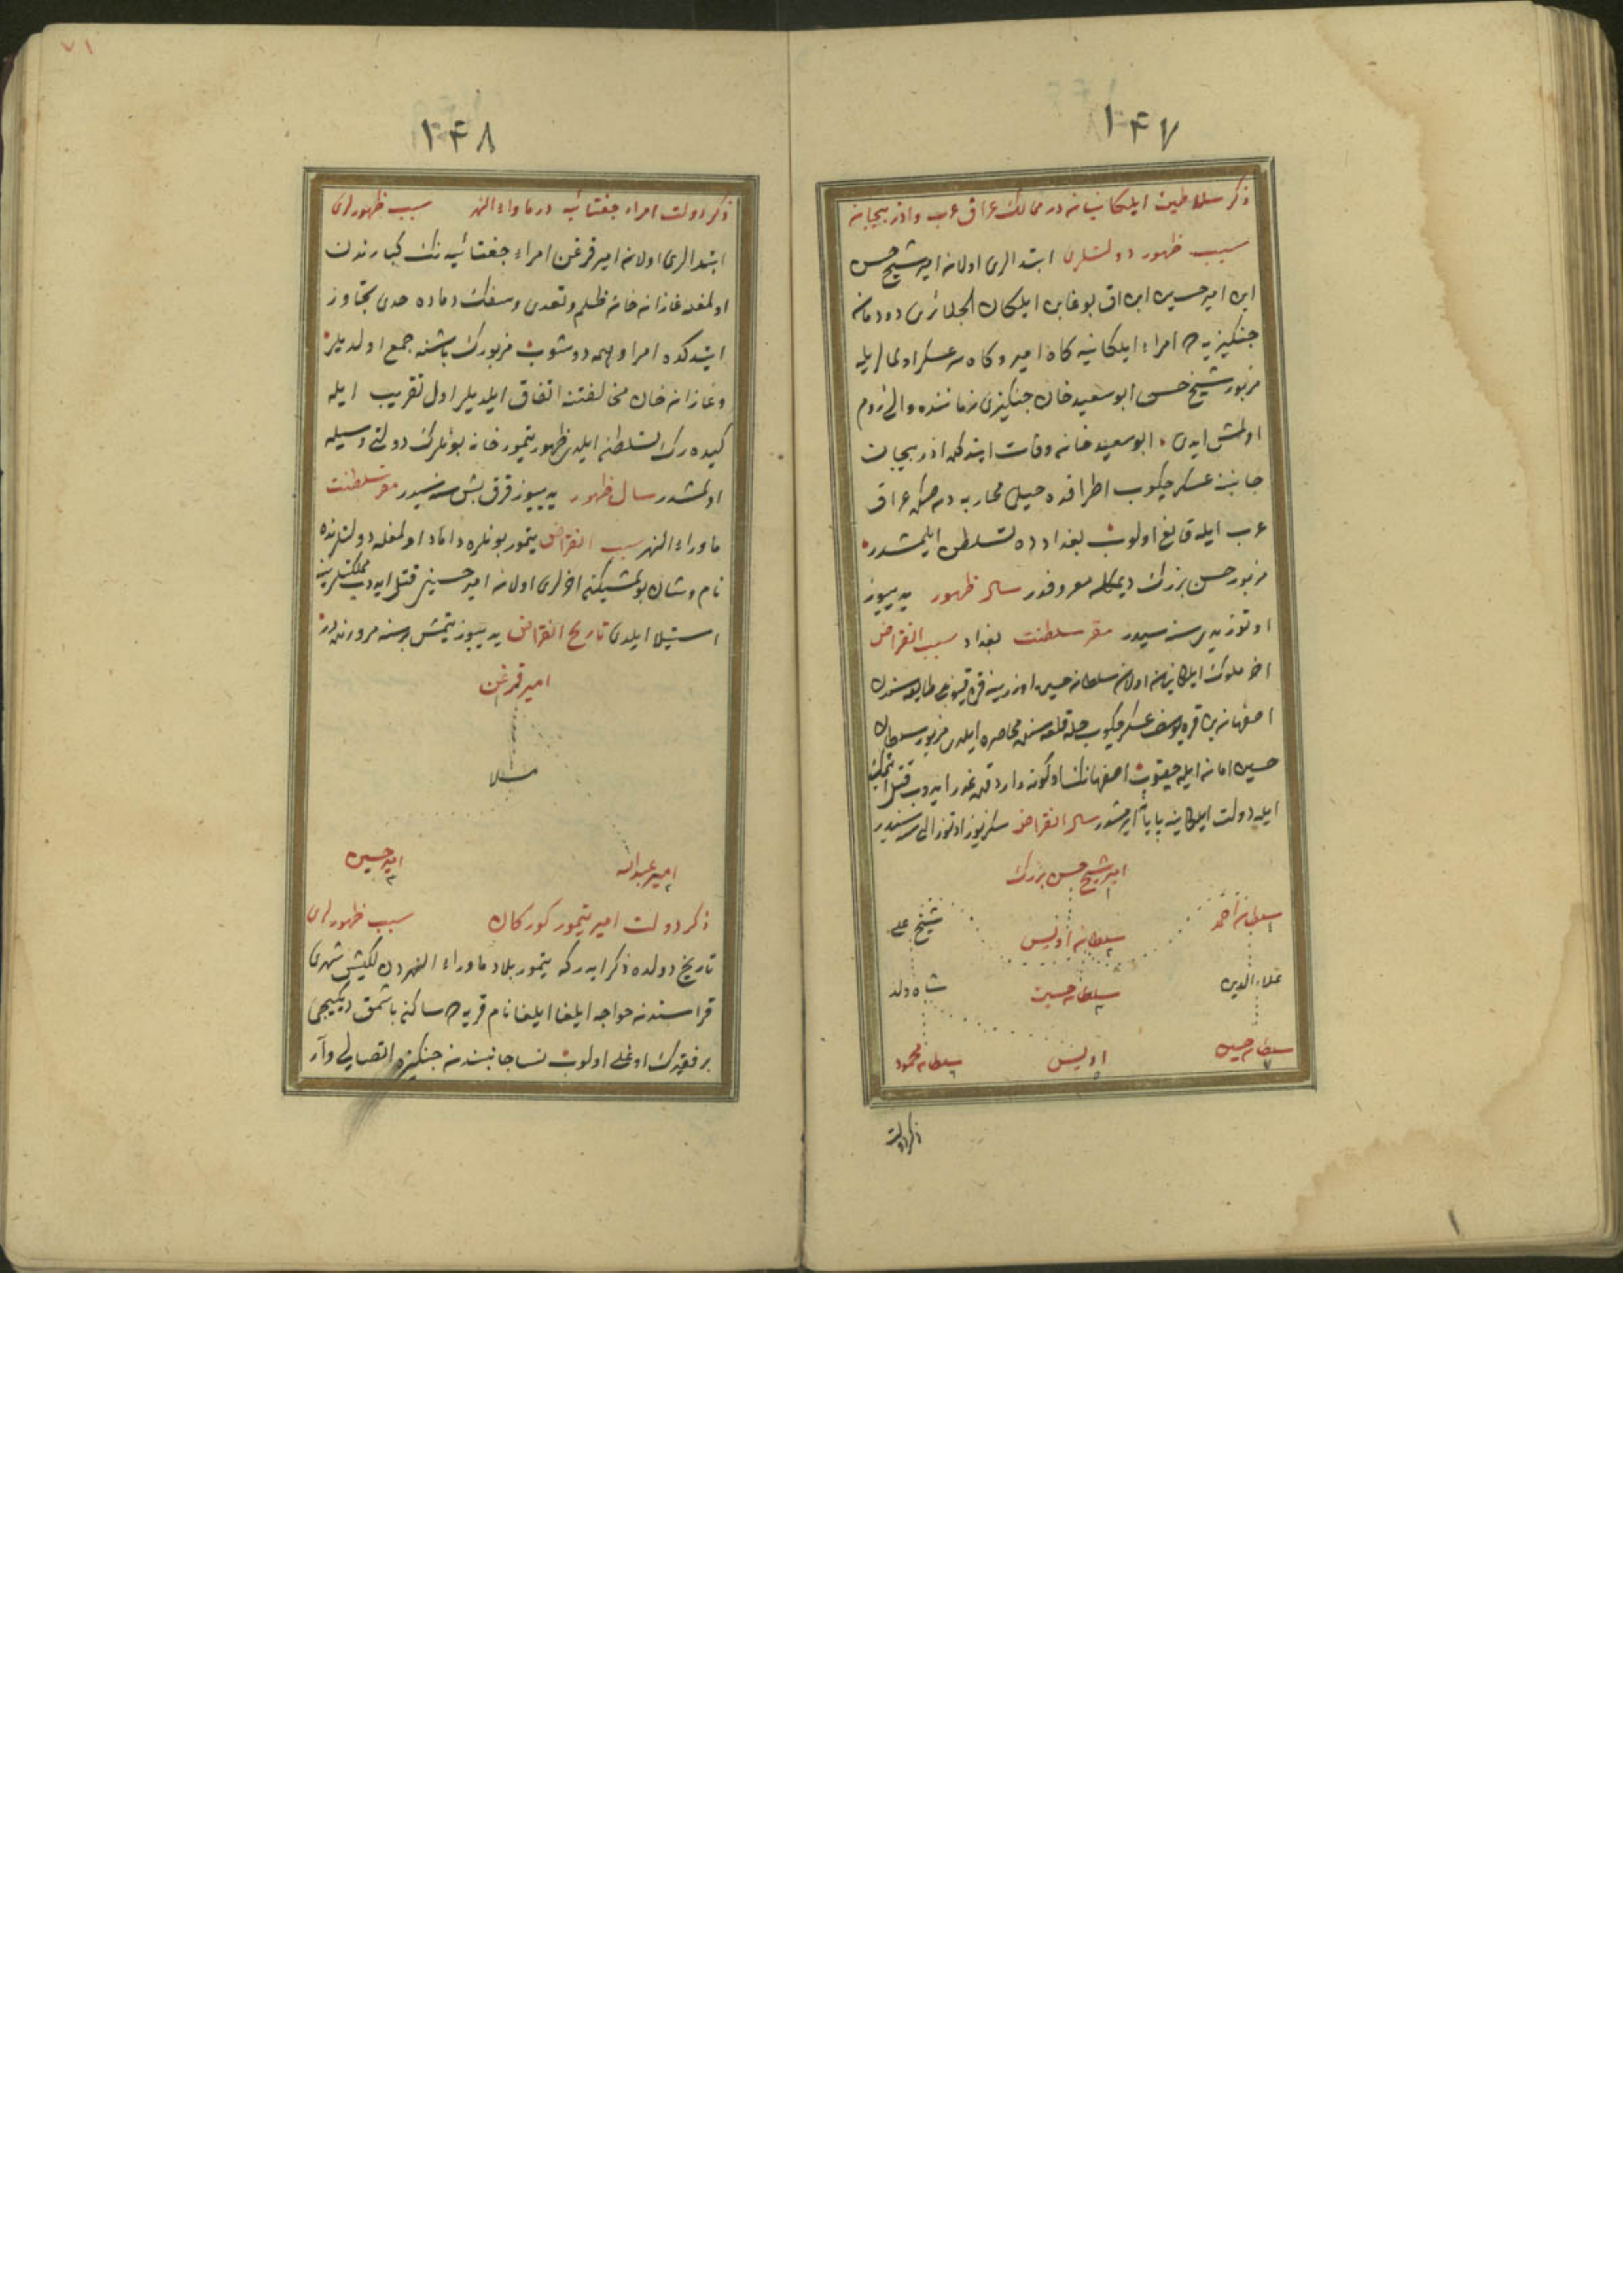 ١٤٧
ذكر سلاطين ايلكانيانه در ممالك عراق عرب واذربيجانه
سبب ظهور دولتلرى ابتدالرى اولانه امير شيخ حسن
ابن امير حسين ابن اق بوغا بن ايلكان الجلائرى دودمانه
جنكيزيه ده امراء ايلكانيه كاه امير وكاه سر عسكر اولمالريله
مزبور شيخ حسن ابو سعيد خان جنكيزى زماننده والئ روم
اولمش ايدى ابو سعيد خانه وفات ايتدكده اذربيجان
جانبنه عسكر چكوب اطرافده خيلى محاربه دنصكره عراق
عرب ايله قانع اولوب بغدادده تسلطن ايلمشدر
مزبور حسن بزرك ديمكله معروفدر سال ظهور يدييوز
اوتوز يدى سنه سيدر مقر سلطنت بغداد سبب انقراض
اخر ملوك ايلكانيانه اولانه سلطانه حسين اوزرينه قره قيونلى طايفه سندن
اصفهانه بن قره يوسف عسكر چكوب حله قلعه سنى محاصره ايلدى مزبور سلطان
حسين امانه ايله چيقوب اصفهانك اوكونه واردقده غدر ايدوب قتل ايتمكله
ايله دولت ايلكانيه پايانه ايرمشدر سال انقراض سكزيوز اوتوز التى سنه سيدر
امير شيخ حسن بزرك
١
سلطانه احمد
سلطانه اويس
٢
شيخ على
علاء الدين
سلطانه حسين
٣
شاه ولد
سلطانه حسين
٧
اويس
٥
سلطانه محمود
٦
ذكر دولت
٧١
١٤٨
ذكر دولت امراء جغتائيه در ماوراء النهر سبب ظهورلرى
ابتدالرى اولانه امير قزغن امراء جغتائيه نك كبارندن
اولمغله غازانه خانه ظلم وتعدى وسفك دماده حدى تجاوز
ايتدكده امرا وبهمه دوشوب مزبورك باشنه جمع اولديلر
وغازانه خان مخالفتنه اتفاق ايلديلر اول تقريب ايله
كيده رك تسلطنه ايلدى ظهور تيمور خانه بونلرك دولتى وسيله
اولمشدر سال ظهور يديیوز قرق بش سنه سيدر مقر سلطنت
ماوراء النهر سبب انقراض تيمور بونلره داماد اولمغله دولتلرنده
نام وشان بولمشيكن اخرلرى اولانه امير حسينى قتل ايدوب مملكتلرينه
استيلا ايلدى تاريخ انقراض يديیوز يتمش بر سنه مرورنده در
امير قزغن
١
مسلا
امير عبد الله
٢
امير حسين
٣
ذكر دولت امير تيمور كوركان سبب ظهورلرى
تاريخ دولده ذكر ايدر كه تيمور بلاد ماوراء النهردن كيش شهرى
قراسندنه خواجه ايلغا نام قريه ده ساكن باشمق ديكيجى
بر فقيرك اوغلى اولوب نسا جانبندنه جنكيزه اتصالى وار